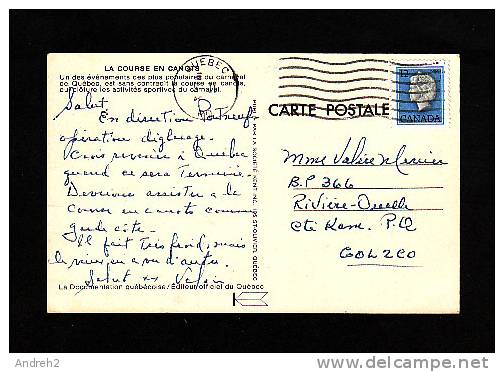 LA COURSE EN CANOTS
Un des évènements des plus populaires du carnaval
de Québec, est sans contredit la course en canots,
qui clôture les activités sportives du carnaval.
QUEBEC
CARTE POSTALE
CANADA
Salut,
En direction Portneuf
opération
Crois revenir à Québec
quand ce sera terminé.
Devrions assister à la
course en canots comme
garde côte.
Il fait très froid, mais
Salut xx Valois
Mme Valère Mercier
B.P 366
Rivière-Ouelle
Cté Kam. P.Q
G0L 2C0
La Documentation québécoise / Éditeur officiel du Québec
Andreh2
delcampe.net